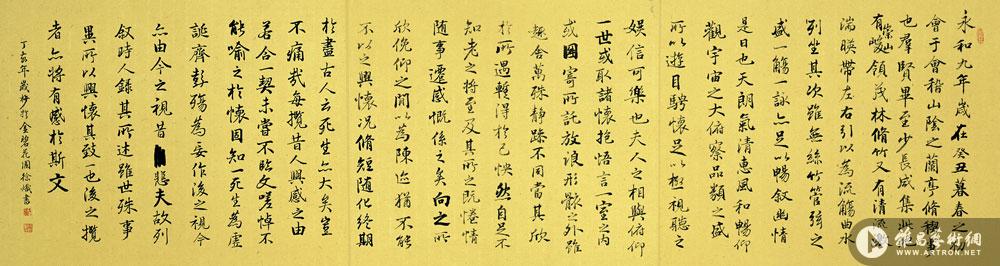 永和九年歲在癸丑暮春之初
會于會稽山陰之蘭亭脩禊事
也羣賢畢至少長咸集此
有崇山峻領茂林脩竹又有清流激
湍暎帶左右引以為流觴曲水
列坐其次雖無絲竹管弦之
盛一觴一詠亦足以暢敘幽情
是日也天朗氣清惠風和暢仰
觀宇宙之大俯察品類之盛
所以遊目騁懷足以極視聽之
娛信可樂也夫人之相與俯仰
一世或取諸懷抱悟言一室之內
或因寄所託放浪形骸之外雖
趣舍萬殊靜躁不同當其欣
於所遇輕得於己快然自足不
知老之將至及其所之既惓情
隨事遷感慨係之矣向之所
欣俛仰之間以為陳迹猶不能
不以之興懷況脩短隨化終期
於盡古人云死生亦大矣豈
不痛哉每攬昔人興感之由
若合一契未嘗不臨文嗟悼不
能喻之於懷固知一死生為虛
誕齊彭殤為妄作後之視今
亦由今之視昔悲夫故列
敘時人錄其所述雖世殊事
異所以興懷其致一也後之攬
者亦將有感於斯文
丁亥年歲抄於金碧花園徐斌書
雅昌藝術網
WWW.ARTRON.NET